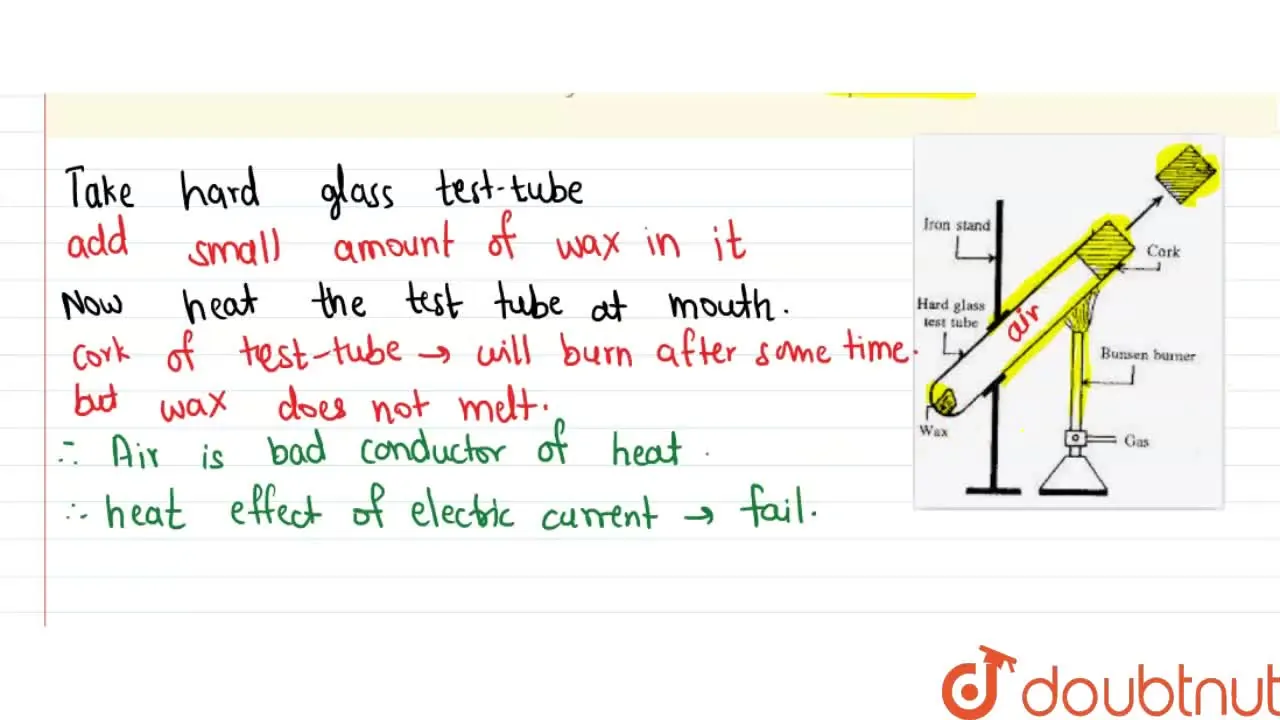 Take hard glass test-tube
add small amount of wax in it
Now heat the test tube at mouth.
cork of test-tube → will burn after some time.
but wax does not melt.
∴ Air is bad conductor of heat.
∴ heat effect of electric current → fail.
Iron stand
Cork
Hard glass
test tube
air
Bunsen burner
Wax
Gas
doubtnut